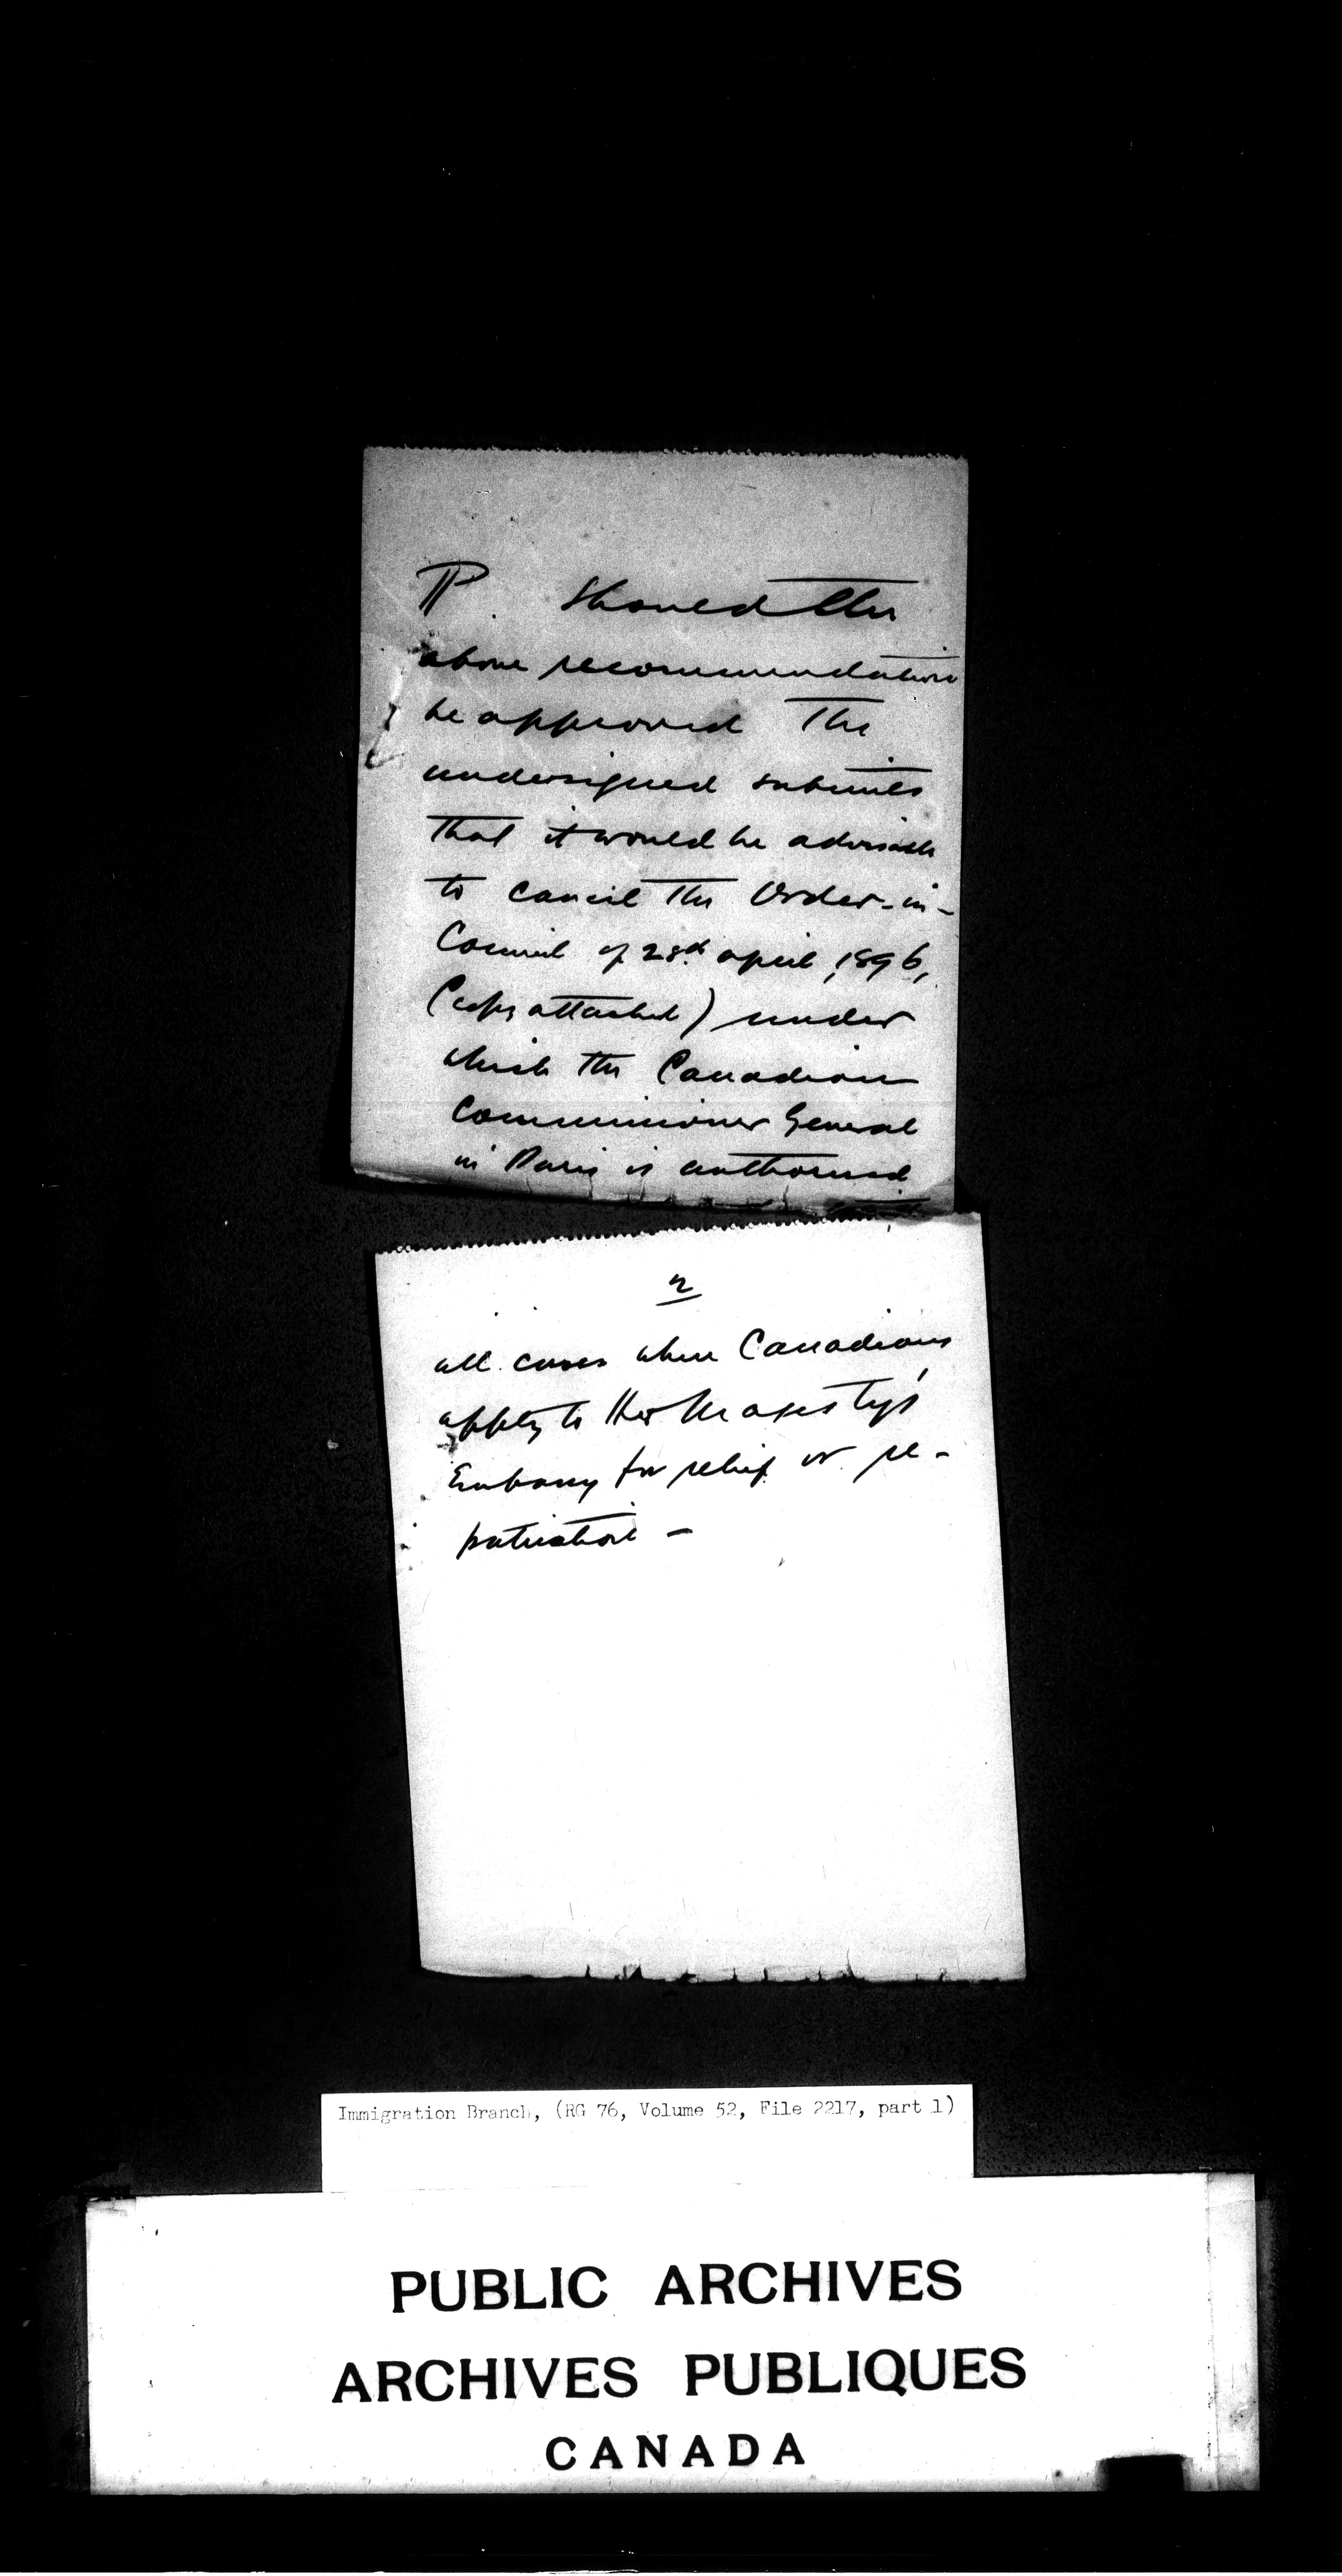 P. Should the
above recommendation
be approved the
undersigned submits
that it would be advisable
to cancel the Order-in-
Council of 28th april, 1896,
(copy attached) under
which the Canadian
Commissioner General
in Paris is authorised
2
all cases where Canadians
apply to Her Majesty's
Embassy for relief or re-
patriation -
Immigration Branch, (RG 76, Volume 52, File 2217, part 1)
PUBLIC ARCHIVES
ARCHIVES PUBLIQUES
CANADA